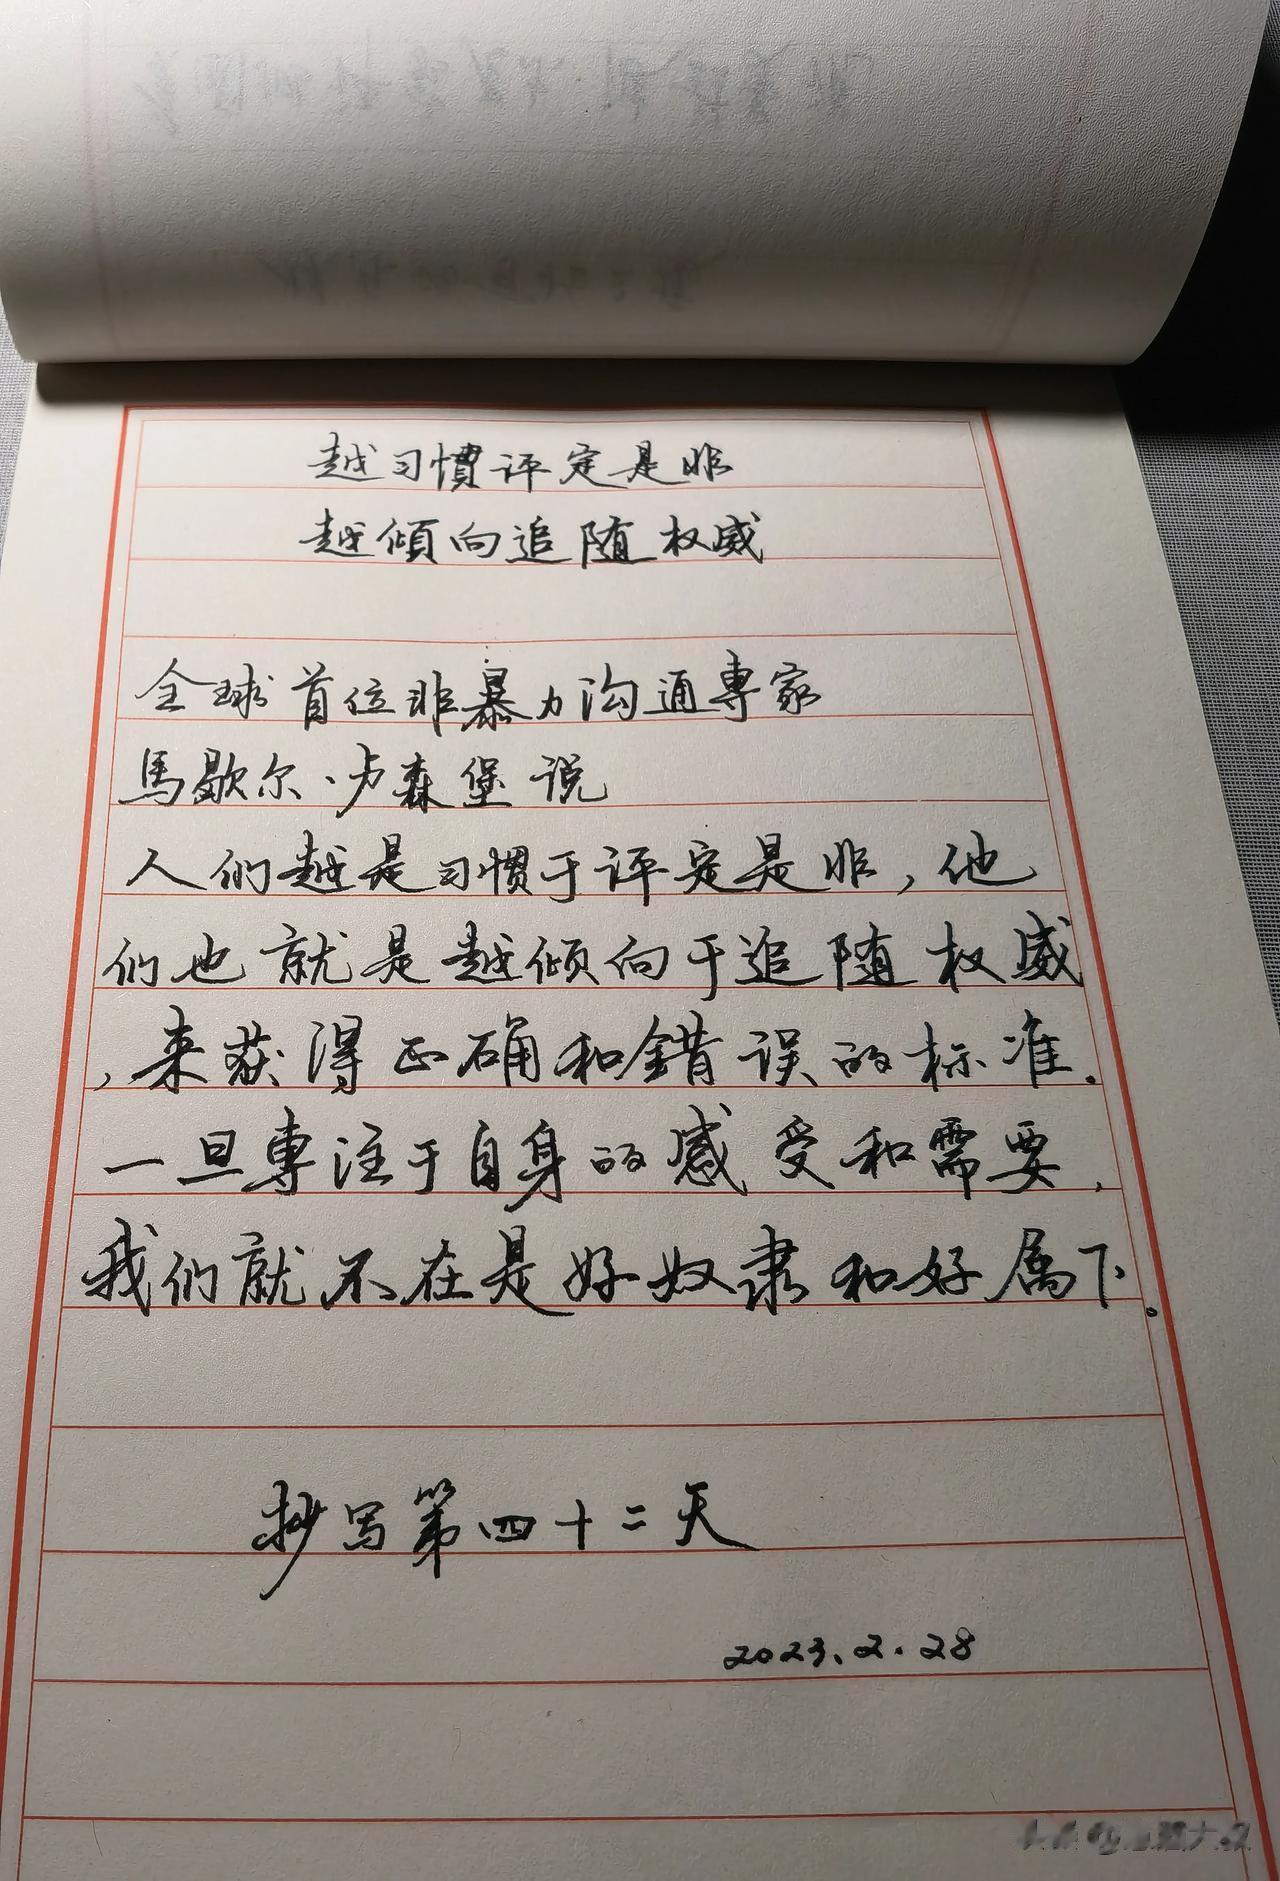 越习慣评定是非
越傾向追随权威
全球首位非暴力沟通專家
馬歇尔·卢森堡说
人们越是习惯于评定是非，他
们也就是越倾向于追随权威
，来获得正确和錯误的标准.
一旦專注于自身的感受和需要，
我们就不在是好奴隶和好属下。
抄写第四十二天
2023.2.28